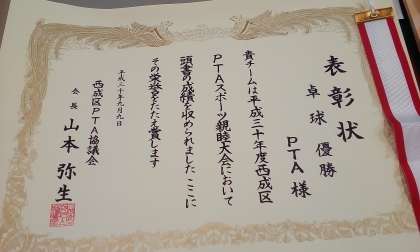 表彰状
卓球 優勝
PTA様
貴チームは平成三十年度西成区
PTAスポーツ親睦大会において
頭書の成績を収められました ここに
その栄誉をたたえ賞します
平成三十年九月九日
西成区PTA協議会
会長 山本弥生